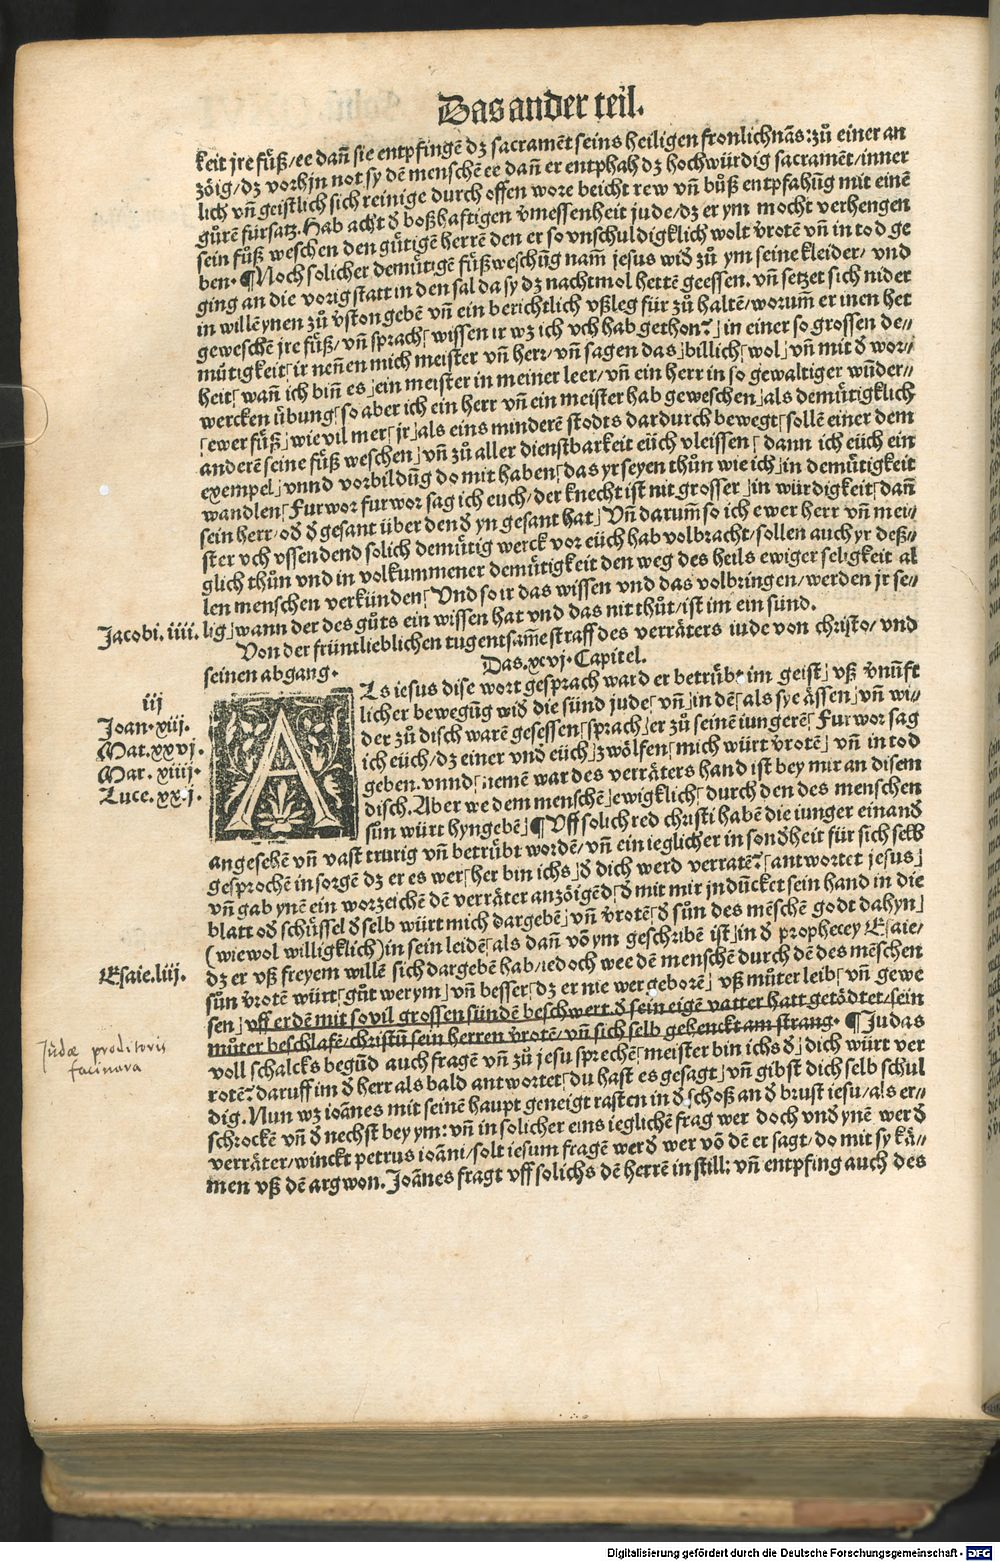 Das ander teil.
keit jre fuͤß/ee dañ sie entpfingē dz sacramēt seins heiligen fronlichnãs: zuͦ einer an
zoͤig/dz vorhjn not sy dē menschē ee dañ er entphah dz hochwürdig sacramēt/inner
lich vñ geistlich sich reinige durch offen wore beicht rew vñ buͦß entpfahũg mit einē
guͦrē fürsatz. Hab acht d̄ boßhafftigen v̄messenheit jude/dz er ym mocht verhengen
sein fuͤß weschen den guͤtigē herrē den er so vnschuldigklich wolt v̄rotē vñ in tod ge
ben. ¶ Noch solicher demuͤtigē fuͤßweschũg nam̃ jesus wid̄ zuͦ ym seine kleider/ vnd
ging an die vorig statt in den sal da sy dz nachtmol hettē geessen. vñ setzet sich nider
in willē ynen zuͦ v̄ston gebē vñ ein berichtlich vßleg für zuͦ haltē/worum̃ er inen het
geweschē jre fuͤß/ vñ sprach⌈ wissen ir wz ich vch hab gethon?⌋ in einer so grossen de⸗
muͤtigkeit⌈ ir nen̄en mich meister vñ herr/ vñ sagen das⌋ billich⌈ wol⌋ vñ mit d̄ wor⸗
heit⌈ wañ ich biñ es⌋ ein meister in meiner leer/ vñ ein herr in so gewaltiger wũder⸗
wercken uͤbung⌈ so aber ich ein herr vñ ein meister hab geweschen⌋ als demuͤtigklich
⌈ewer fuͤß⌋ wie vil mer⌈ jr⌋ als eins minderē stodts dardurch bewegt⌈ sollē einer dem
anderē seine fuͤß weschen⌋ vñ zuͦ aller dienstbarkeit eüch vleissen⌈ dann ich eüch ein
exempel⌋ vnnd vorbildũg do mit haben⌈ das yr seyen thuͦn wie ich⌋ in demuͤtigkeit
wandlen⌈ Furwor furwor sag ich euch/ der knecht ist nit grosser⌋ in würdigkeit⌈ dañ
sein herr/ od̄ d̄ gesant über den d̄ yn gesant hat⌋ Vñ darum̃ so ich ewer herr vñ mei⸗
ster vch vssendend solich demuͤtig werck vor eüch hab volbracht/ sollen auch yr deß⸗
glich thuͦn vnd in volkummener demuͤtigkeit den weg des heils ewiger seligkeit al
len menschen verkünden⌈ Vnd so ir das wissen vnd das volbringen/ werden jr se⸗
Jacobi. iiii. lig⌋ wann der des guͦts ein wissen hat vnd das nit thuͦt/ ist im ein sünd.
Von der früntlieblichen tugentsam̃e straff des verraͤters iude von christo/ vnd
seinen abgang. Das. xcvj. Capitel.
iij
Joan. xiij.
Mat. xxvj.
Mar. xiiij.
Luce. xxij.
ALs iesus dise wort gesprach ward er betruͤbt im geist⌋ vß v̄nũfft
licher bewegũg wid̄ die sünd jude⌈ vñ⌋ in dē⌈ als sye aͤssen⌋ vñ wi⸗
der zuͦ disch warē gesessen⌈ sprach⌋ er zuͦ seinē iungerē⌈ Furwor sag
ich eüch/ dz einer vnd eüch⌋ zwoͤlfen⌈ mich würt v̄rotē⌋ vñ in tod
geben. vnnd⌈ nemē war des verraͤters hand ist bey mir an disem
disch. Aber we dem menschē⌋ ewigklich⌈ durch den des menschen
suͦn würt hyngebē⌋ ¶ Vff solich red christi habē die iunger einand̄
angesehē vñ vast trurig vñ betruͤbt wordē/ vñ ein ieglicher in sond̄heit für sich selb
gesprochē in sorgē dz er es wer⌈ her bin ichs⌋ d̄ dich werd verratē?⌈ antwortet jesus⌋
vñ gab ynē ein worzeichē dē verraͤter anzoͤigēd⌈ d̄ mit mir jndũcket sein hand in die
blatt od̄ schüssel d̄selb würt mich dargebē⌋ vñ v̄rotē⌈ d̄ suͦn des mēschē godt dahyn⌋
(wiewol willigklich) in sein leidē⌈ als dañ võ ym geschribē ist⌋ in d̄ prophecey Esaie/
Esaie. liij. dz er vß freyem willē sich dargebē hab/ iedoch wee dē menschē durch dē des mēschen
suͦn v̄rotē würt⌈ guͦt wer ym⌋ vñ besser⌈ dz er nie wer geborē⌋ vß muͦter leib⌈ vñ gewe
sen⌋ vff erdē mit so vil grossen sündē beschwert. d̄ sein eigē vatter hatt getoͤdtet/ sein
muͦter beschlafē/ christũ sein herren v̄rotē/ vñ sich selb gehenckt am strang. ¶ Judas
Judæ proditoris
facinora
voll schalcks begũd auch fragē vñ zuͦ jesu sprechē⌈ meister bin ichs d̄⌋ dich würt ver
rotē? daruff im d̄ herr als bald antwortet⌈ du hast es gesagt⌋ vñ gibst dich selb schul
dig. Nun wz ioãnes mit seinē haupt geneigt rasten in d̄ schoß an d̄ brust iesu/ als er⸗
schrockē vñ d̄ nechst bey ym: vñ in solicher eins ieglichē frag wer doch vnd̄ ynē wer d̄
verraͤter/ winckt petrus ioãni/ solt iesum fragē werd̄ wer võ dē er sagt/ do mit sy kaͤ⸗
men vß dē argwon. Joãnes fragt vff solichs dē herrē in still: vñ entpfing auch des
Digitalisierung gefördert durch die Deutsche Forschungsgemeinschaft - DFG